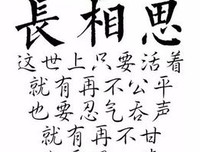 長相思
这世上只要活着
就有再不公平
也要忍气吞声
就有再不甘